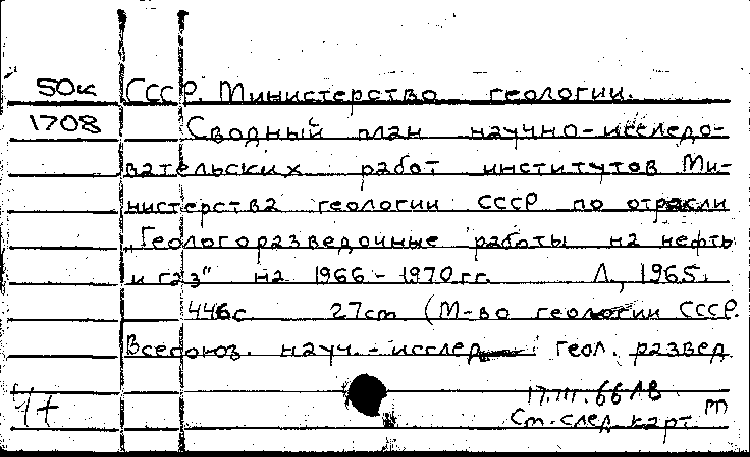 50к СССР. Министерство геологии.
1708 Сводный план научно-исследо-
вательских работ институтов Ми-
нистерства геологии СССР по отрасли
„Геологоразведочные работы на нефть
и газ" на 1966-1970 гг. Л., 1965.
446с. 27cm (М-во геологии СССР.
Всесоюз. науч.-исслед геол. развед
17.III.66 ЛВ
См. след. карт. m